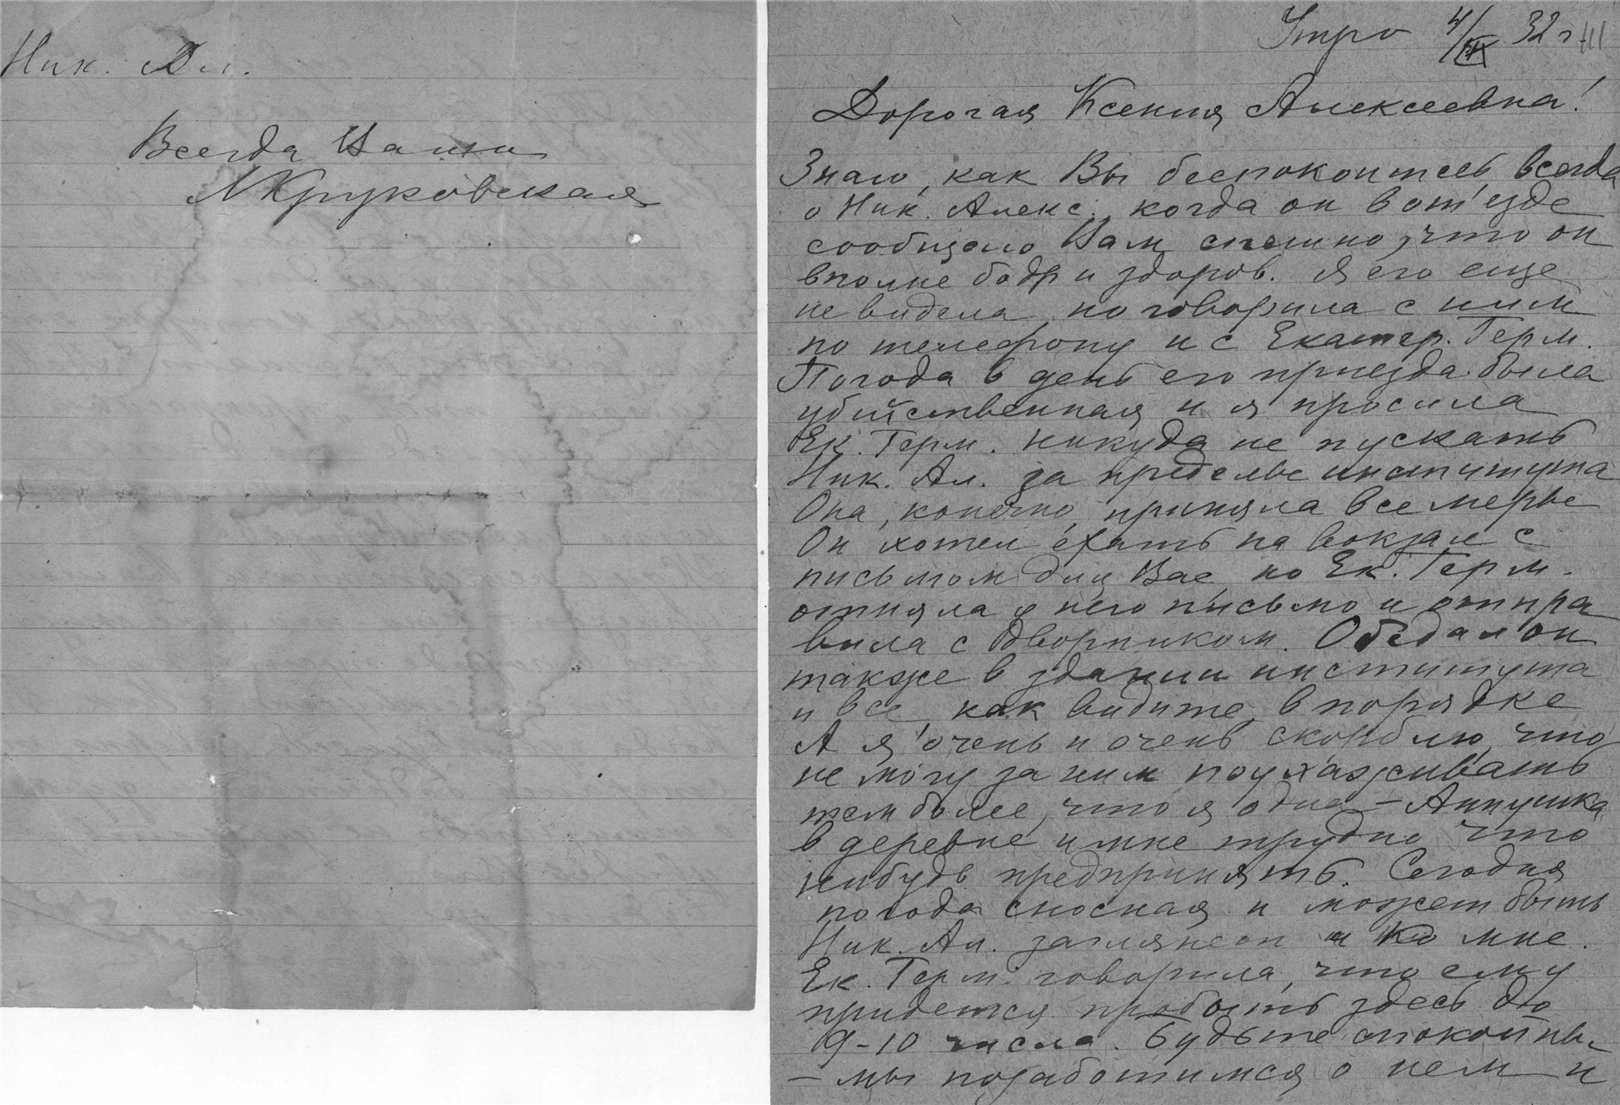 Утро 4/IX 32 г.
Дорогая Ксения Алексеевна!
Знаю, как Вы беспокоитесь всегда
о Ник. Алекс., когда он в от'езде
сообщаю Вам спешно, что он
вполне бодр и здоров. Я его еще
не видела, но говорила с ним
по телефону и с Екатер. Герм.
Погода в день его приезда была
убийственная и я просила
Ек. Герм. никуда не пускать
Ник. Ал. за пределы института
Она, конечно, приняла все меры
Он хотел ехать на вокзал с
письмом для Вас, но Ек. Герм.
отняла у него письмо и отпра
вила с дворником. Обедал он
также в здании института
и все, как видите, в порядке
А я очень и очень скорблю, что
не могу за ним поухаживать
тем более, что я одна – Аннушка
в деревне и мне трудно что
нибудь предпринять. Сегодня
погода сносная и может быть
Ник. Ал. заглянет и ко мне.
Ек. Герм. говорила, что ему
придется пробыть здесь до
9-10 числа. Будьте спокойны
– мы позаботимся о нем и
Ник. Ал.
Всегда Ваша
Круковская